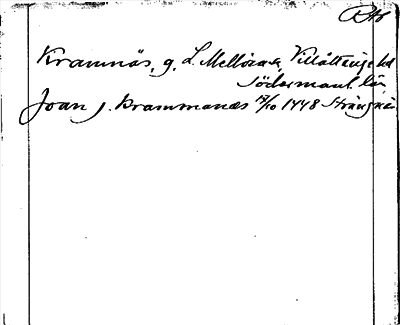 RAp
Kramnäs, g, L Mellösa sn, Villåttinge hd
Södermanl. län
Joan j. Krammanæs 17/10 1448 Strängnäs